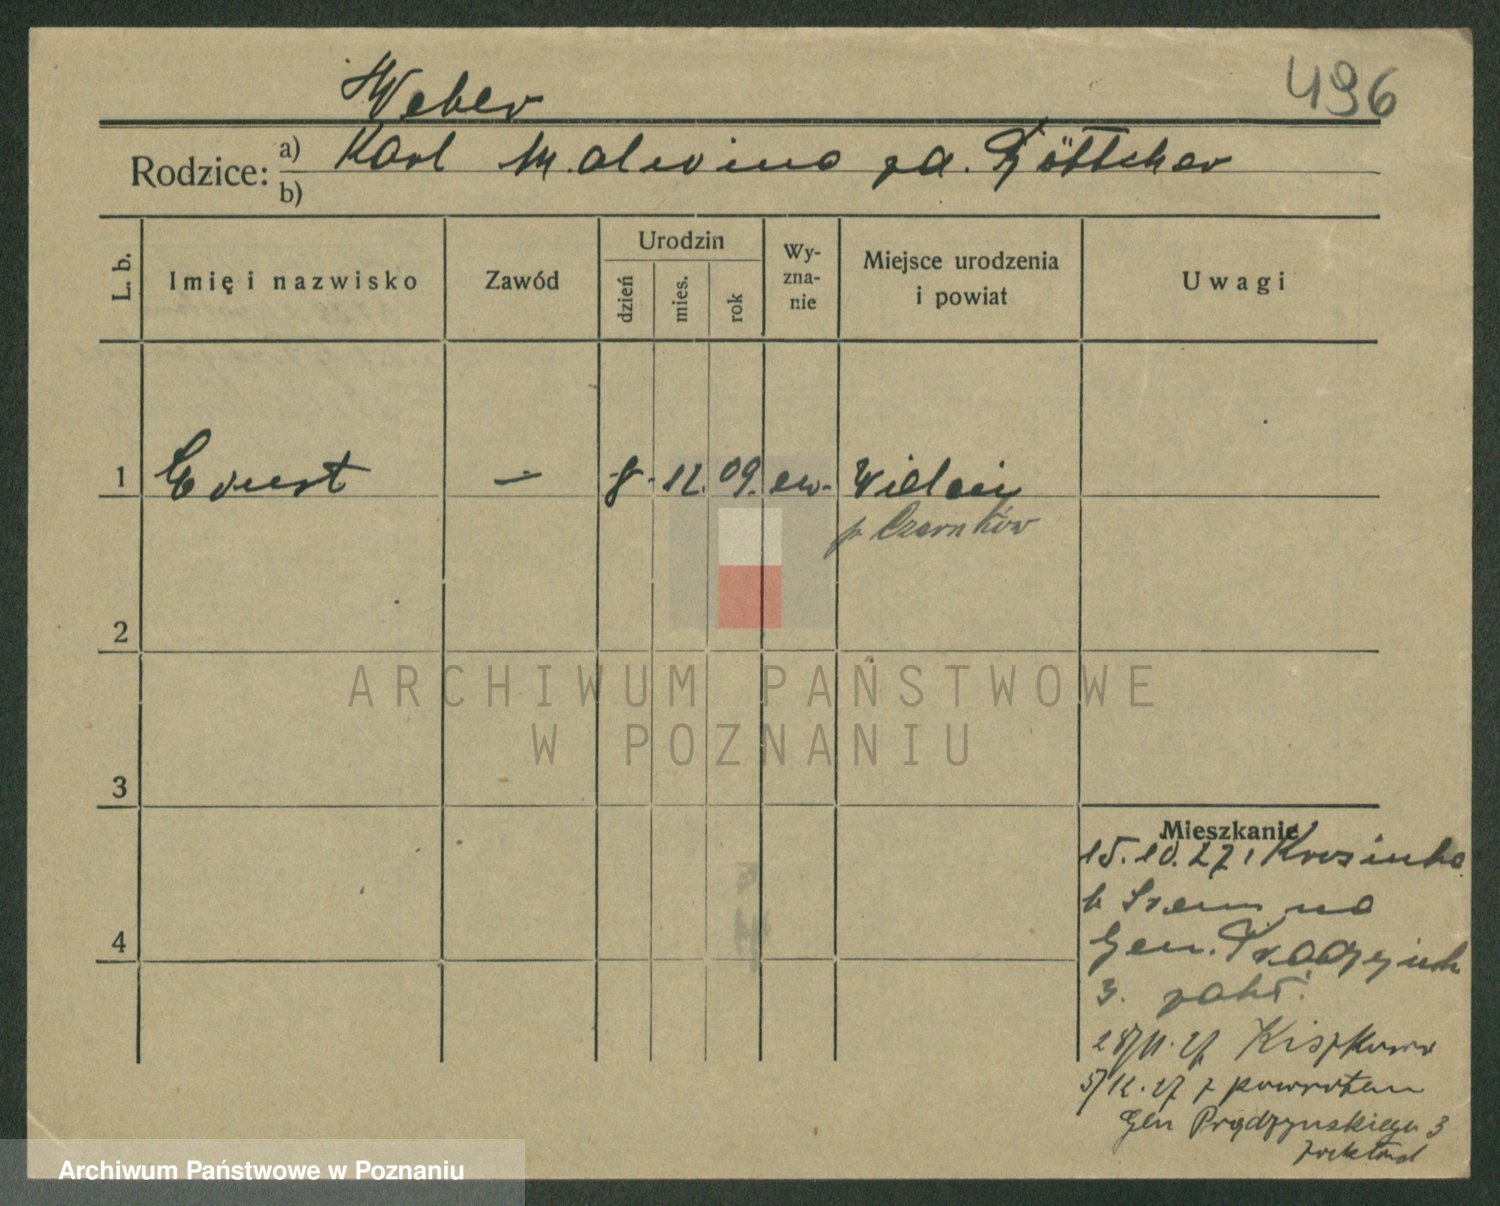 496
Weber
Rodzice: a) Karl Malwina zd. Böttcher
b)
L. b.
Imię i nazwisko
Zawód
Urodzin
dzień
mies.
rok
Wy-
zna-
nie
Miejsce urodzenia
i powiat
Uwagi
1 Ernst — 8. 12. 09. ew. Wieleń
p. Czarnków
2
3
4
ARCHIWUM PAŃSTWOWE
W POZNANIU
Mieszkanie
15.10.27
b Śrem na
Gen.
3. zakł.
28/11.27 Kiszkowo
5/12.27 z powrotem
Gen Prądzyńskiego 3
zakład
Archiwum Państwowe w Poznaniu